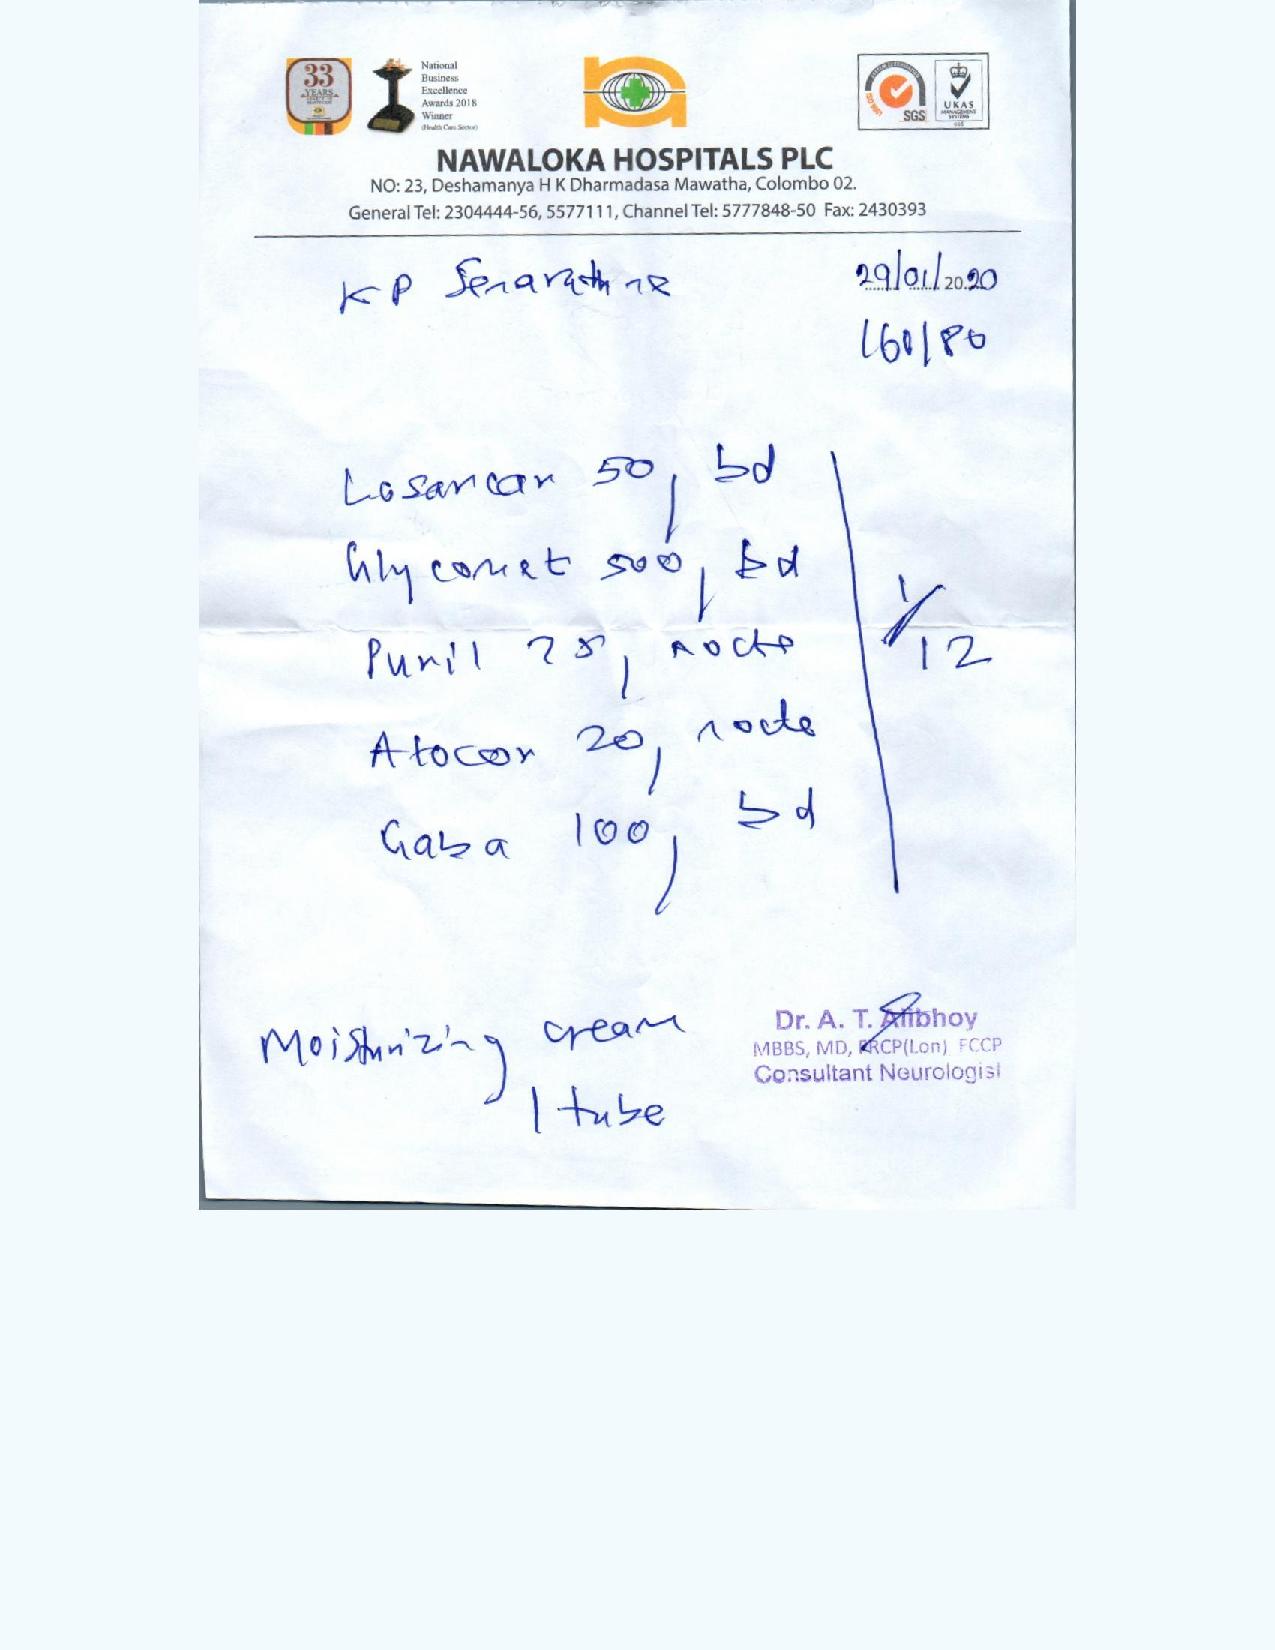 33
YEARS
National
Business
Excellence
Awards 2018
Winner
(Health Care Sector)
SGS
UKAS
MANAGEMENT
SYSTEMS
NAWALOKA HOSPITALS PLC
NO: 23, Deshamanya H K Dharmadasa Mawatha, Colombo 02.
General Tel: 2304444-56, 5577111, Channel Tel: 5777848-50 Fax: 2430393
KP Senarathne
29/01/2020
160/80
Losarcar 50, bd
Glycomet 500, bd
Puril 25, nocte
Atocor 20, nocte
Gaba 100, bd
1/12
Moisturizing cream
1 tube
Dr. A. T. Alibhoy
MBBS, MD, FRCP(Lon) FCCP
Consultant Neurologist